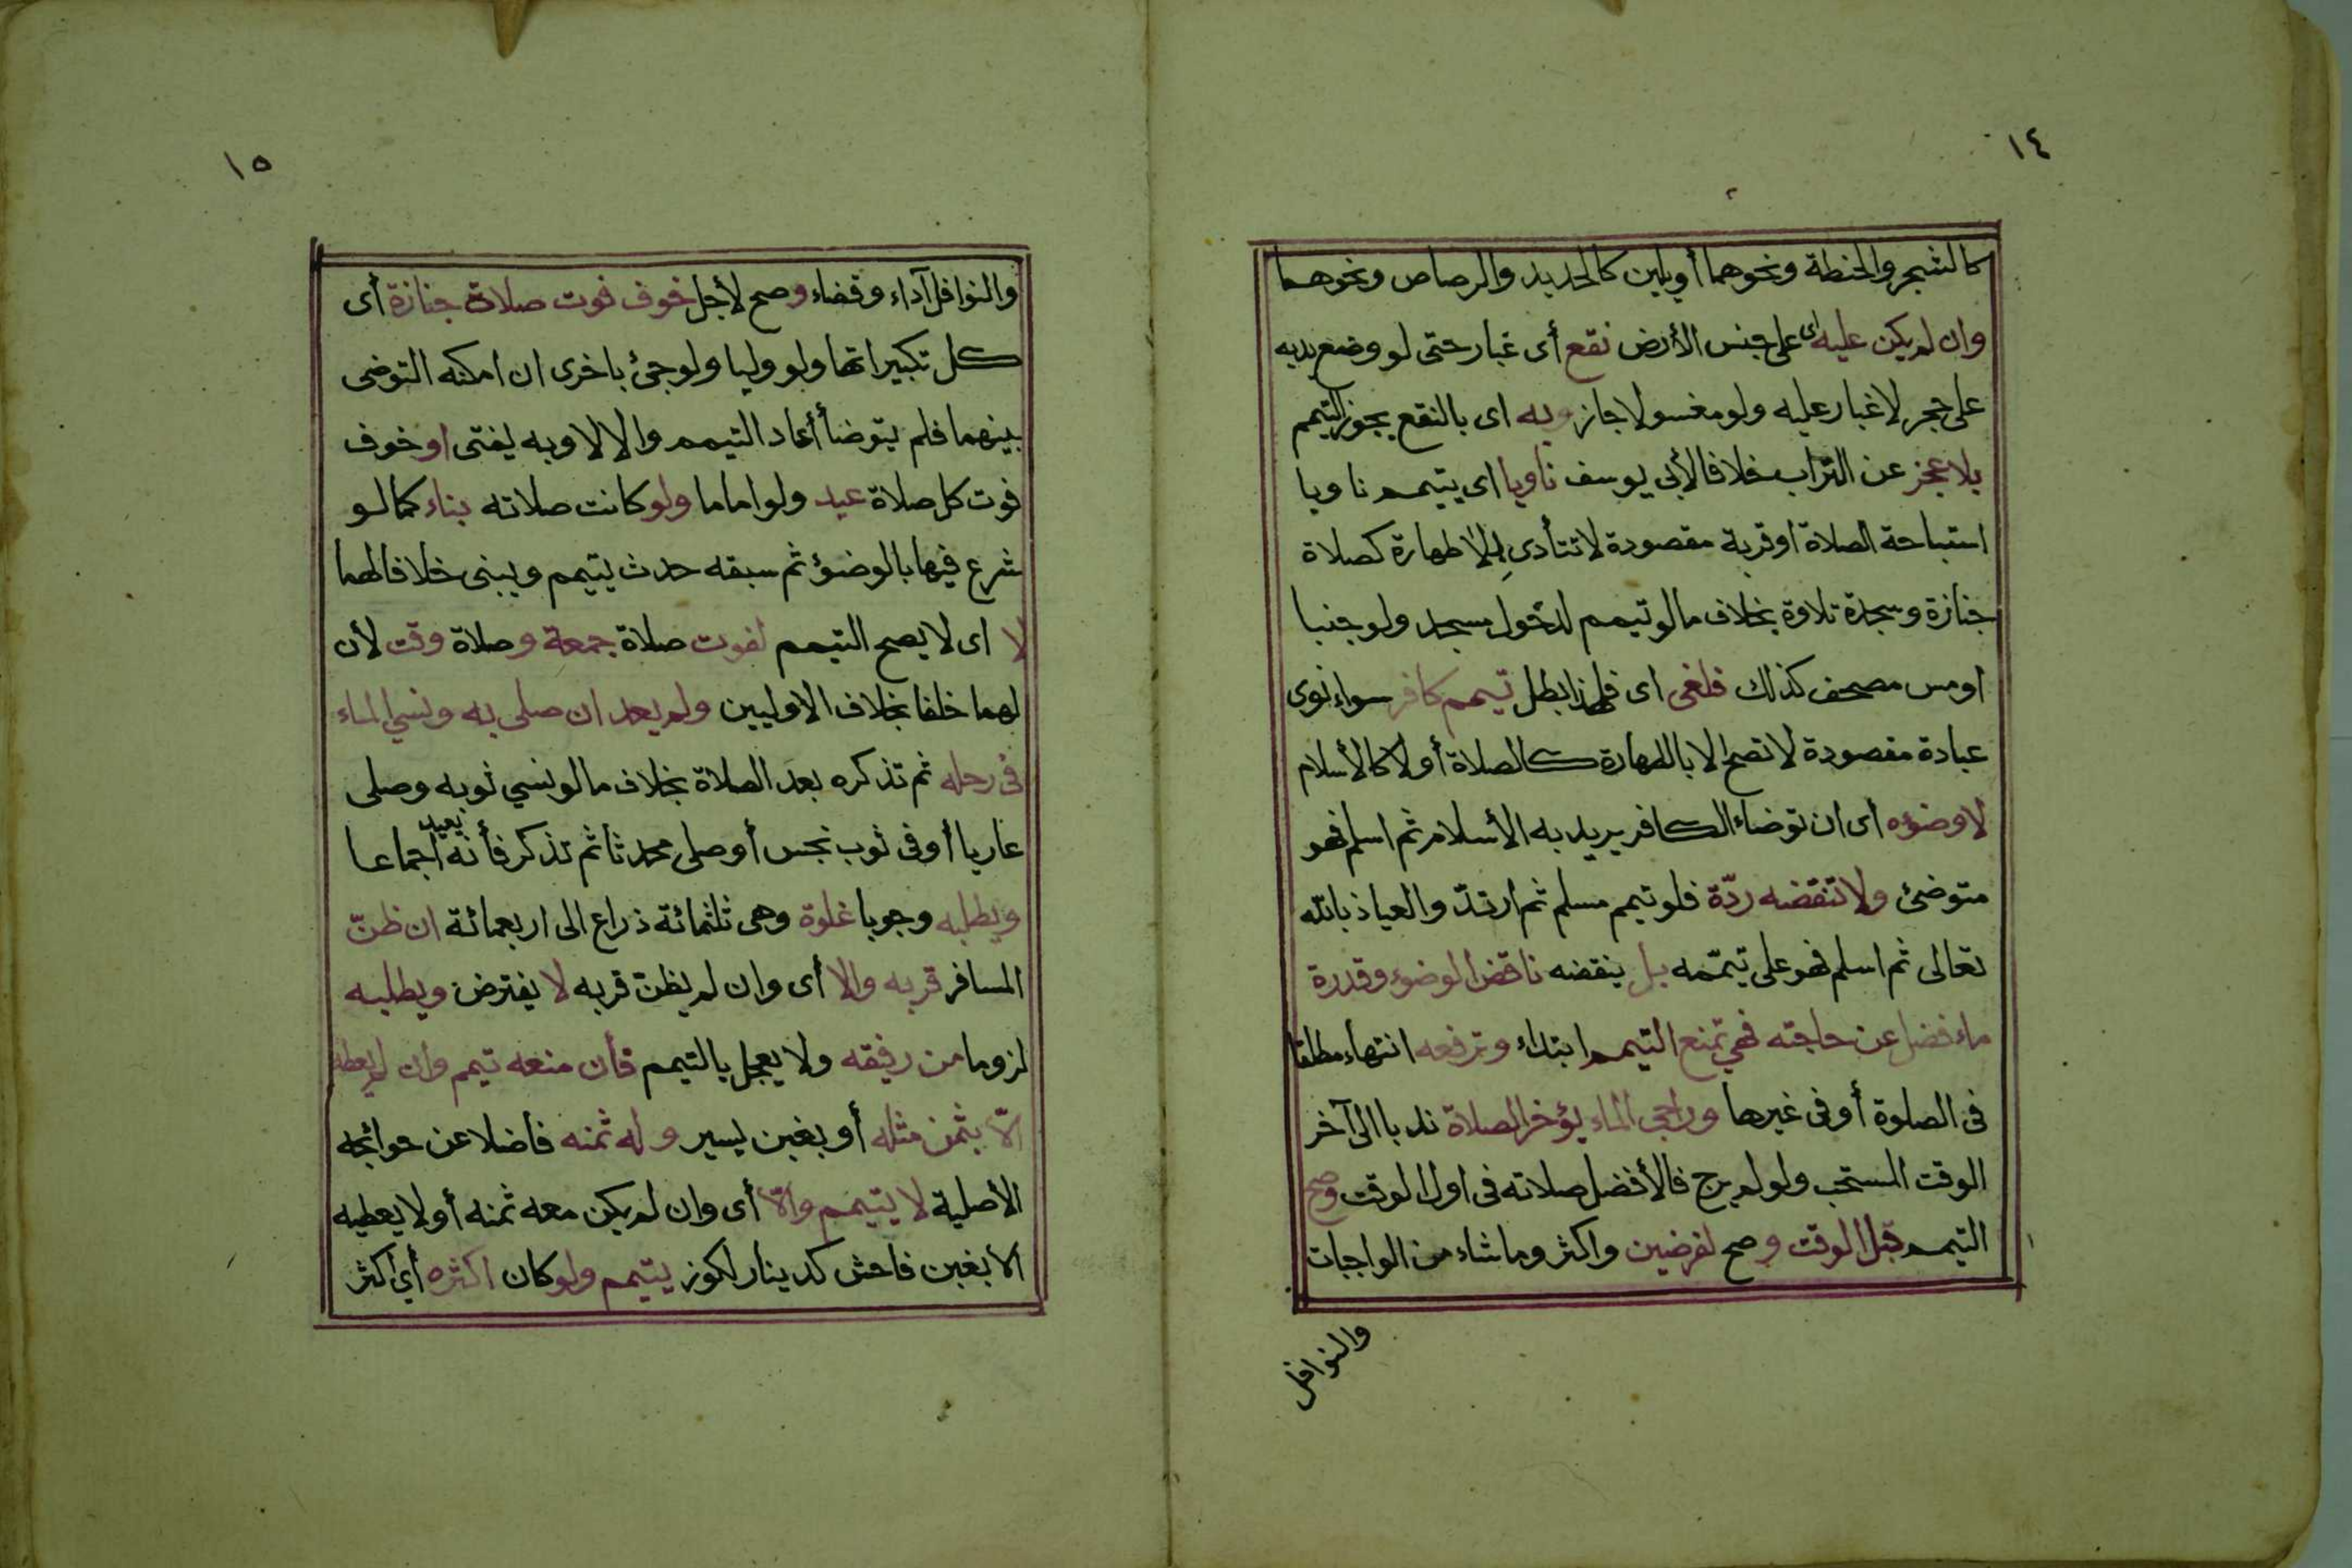 ١٤
كالشجر والحنطة ونحوهما أويلين كالحديد والرصاص ونحوهما
وان لم يكن عليه اى على جنس الأرض نقع أى غبار حتى لو وضع يديه
على حجر لاغبار عليه ولو مغسولا جاز وبه اى بالنقع يجوز التيمم
بلا عجز عن التراب خلافا لأبى يوسف ناويا اى يتيمم ناويا
استباحة الصلاة اوقربة مقصودة لا تتأدى بلا طهارة كصلاة
جنازة وسجدة تلاوة بخلاف مالو تيمم لدخول مسجد ولو جنبا
اومس مصحف كذلك فلغى اى فلهذا بطل تيمم كافر سواء نوى
عبادة مقصودة لا تصح الا بالطهارة كالصلاة أولا كالأسلام
لاوضوءه اى ان توضاء الكافر يريد به الأسلام ثم اسلم فهو
متوضئ ولا تنقضه ردّة فلو تيمم مسلم ثم ارتدّ والعياذ بالله
تعالى ثم اسلم فهو على تيمّمه بل ينقضه ناقض الوضوء وقدرة
ماء فضل عن حاجته فهي تمنع التيمم ابتداء وترفعه انتهاء مطلقا
فى الصلوة أوفى غيرها وراجى الماء يؤخر الصلاة ندبا الى آخر
الوقت المستحب ولو لم يرج فالأفضل صلاته فى اول الوقت وصح
التيمم قبل الوقت وصح لفرضين واكثر وماشاء من الواجبات
والنوافل
١٥
والنوافل آداء وقضاء وصح لأجل خوف فوت صلاة جنازة أى
كل تكبيراتها ولو وليا ولو جئ باخرى ان امكنه التوضى
بينهما فلم يتوضأ أعاد التيمم والا لا وبه يفتى اوخوف
فوت كل صلاة عيد ولو اماما ولو كانت صلاته بناء كما لو
شرع فيها بالوضوء ثم سبقه حدث يتيمم ويبنى خلافا لهما
لا اى لا يصح التيمم لفوت صلاة جمعة وصلاة وقت لأن
لهما خلفا بخلاف الاوليين ولم يعد ان صلى به ونسي الماء
فى رحله ثم تذكره بعد الصلاة بخلاف مالو نسي ثوبه وصلى
عاريا أوفى ثوب نجس أوصلى محدثا ثم تذكر فأنه يعيد اجماعا
ويطلبه وجوبا غلوة وهى ثلثمائة ذراع الى اربعمائة ان ظنّ
المسافر قربه والا أى وان لم يظن قربه لا يفترض ويطلبه
لزوما من رفيقه ولا يعجل بالتيمم فأن منعه تيمم وان لم يعطه
الّا بثمن مثله أو بغبن يسير وله ثمنه فاضلا عن حوائجه
الأصلية لا يتيمم والّا أى وان لم يكن معه ثمنه أولا يعطيه
الا بغبن فاحش كدينار لكوز يتيمم ولو كان اكثره أي اكثر